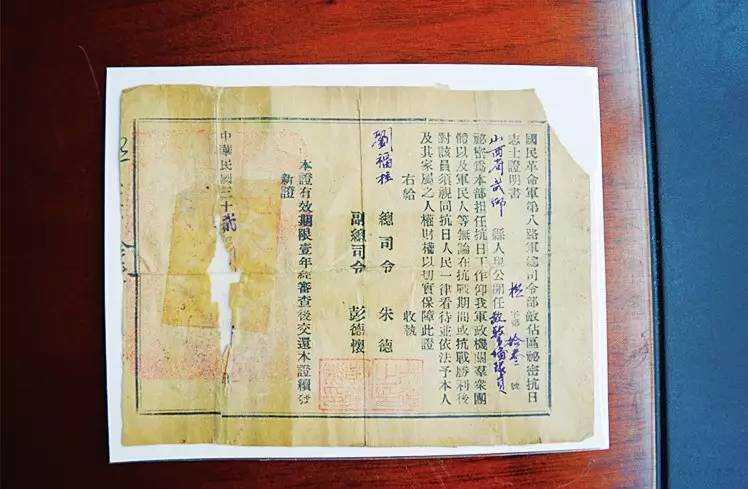 國民革命軍第八路軍總司令部敵佔區祕密抗日
志士證明書 字第拾叁號
山西省武鄉縣人現公開任敵警備隊員
祕密爲本部担任抗日工作仰我軍政機關羣衆團
體以及軍民人等無論在抗戰期間或抗戰勝利後
對該員須視同抗日人民一律看待並依法予本人
及其家屬之人權財權以切實保障此證
右給 收執
劉福
總司令 朱德
副總司令 彭德懷
本證有效期限壹年經審查後交還本證續發
新證
中華民國三十貳